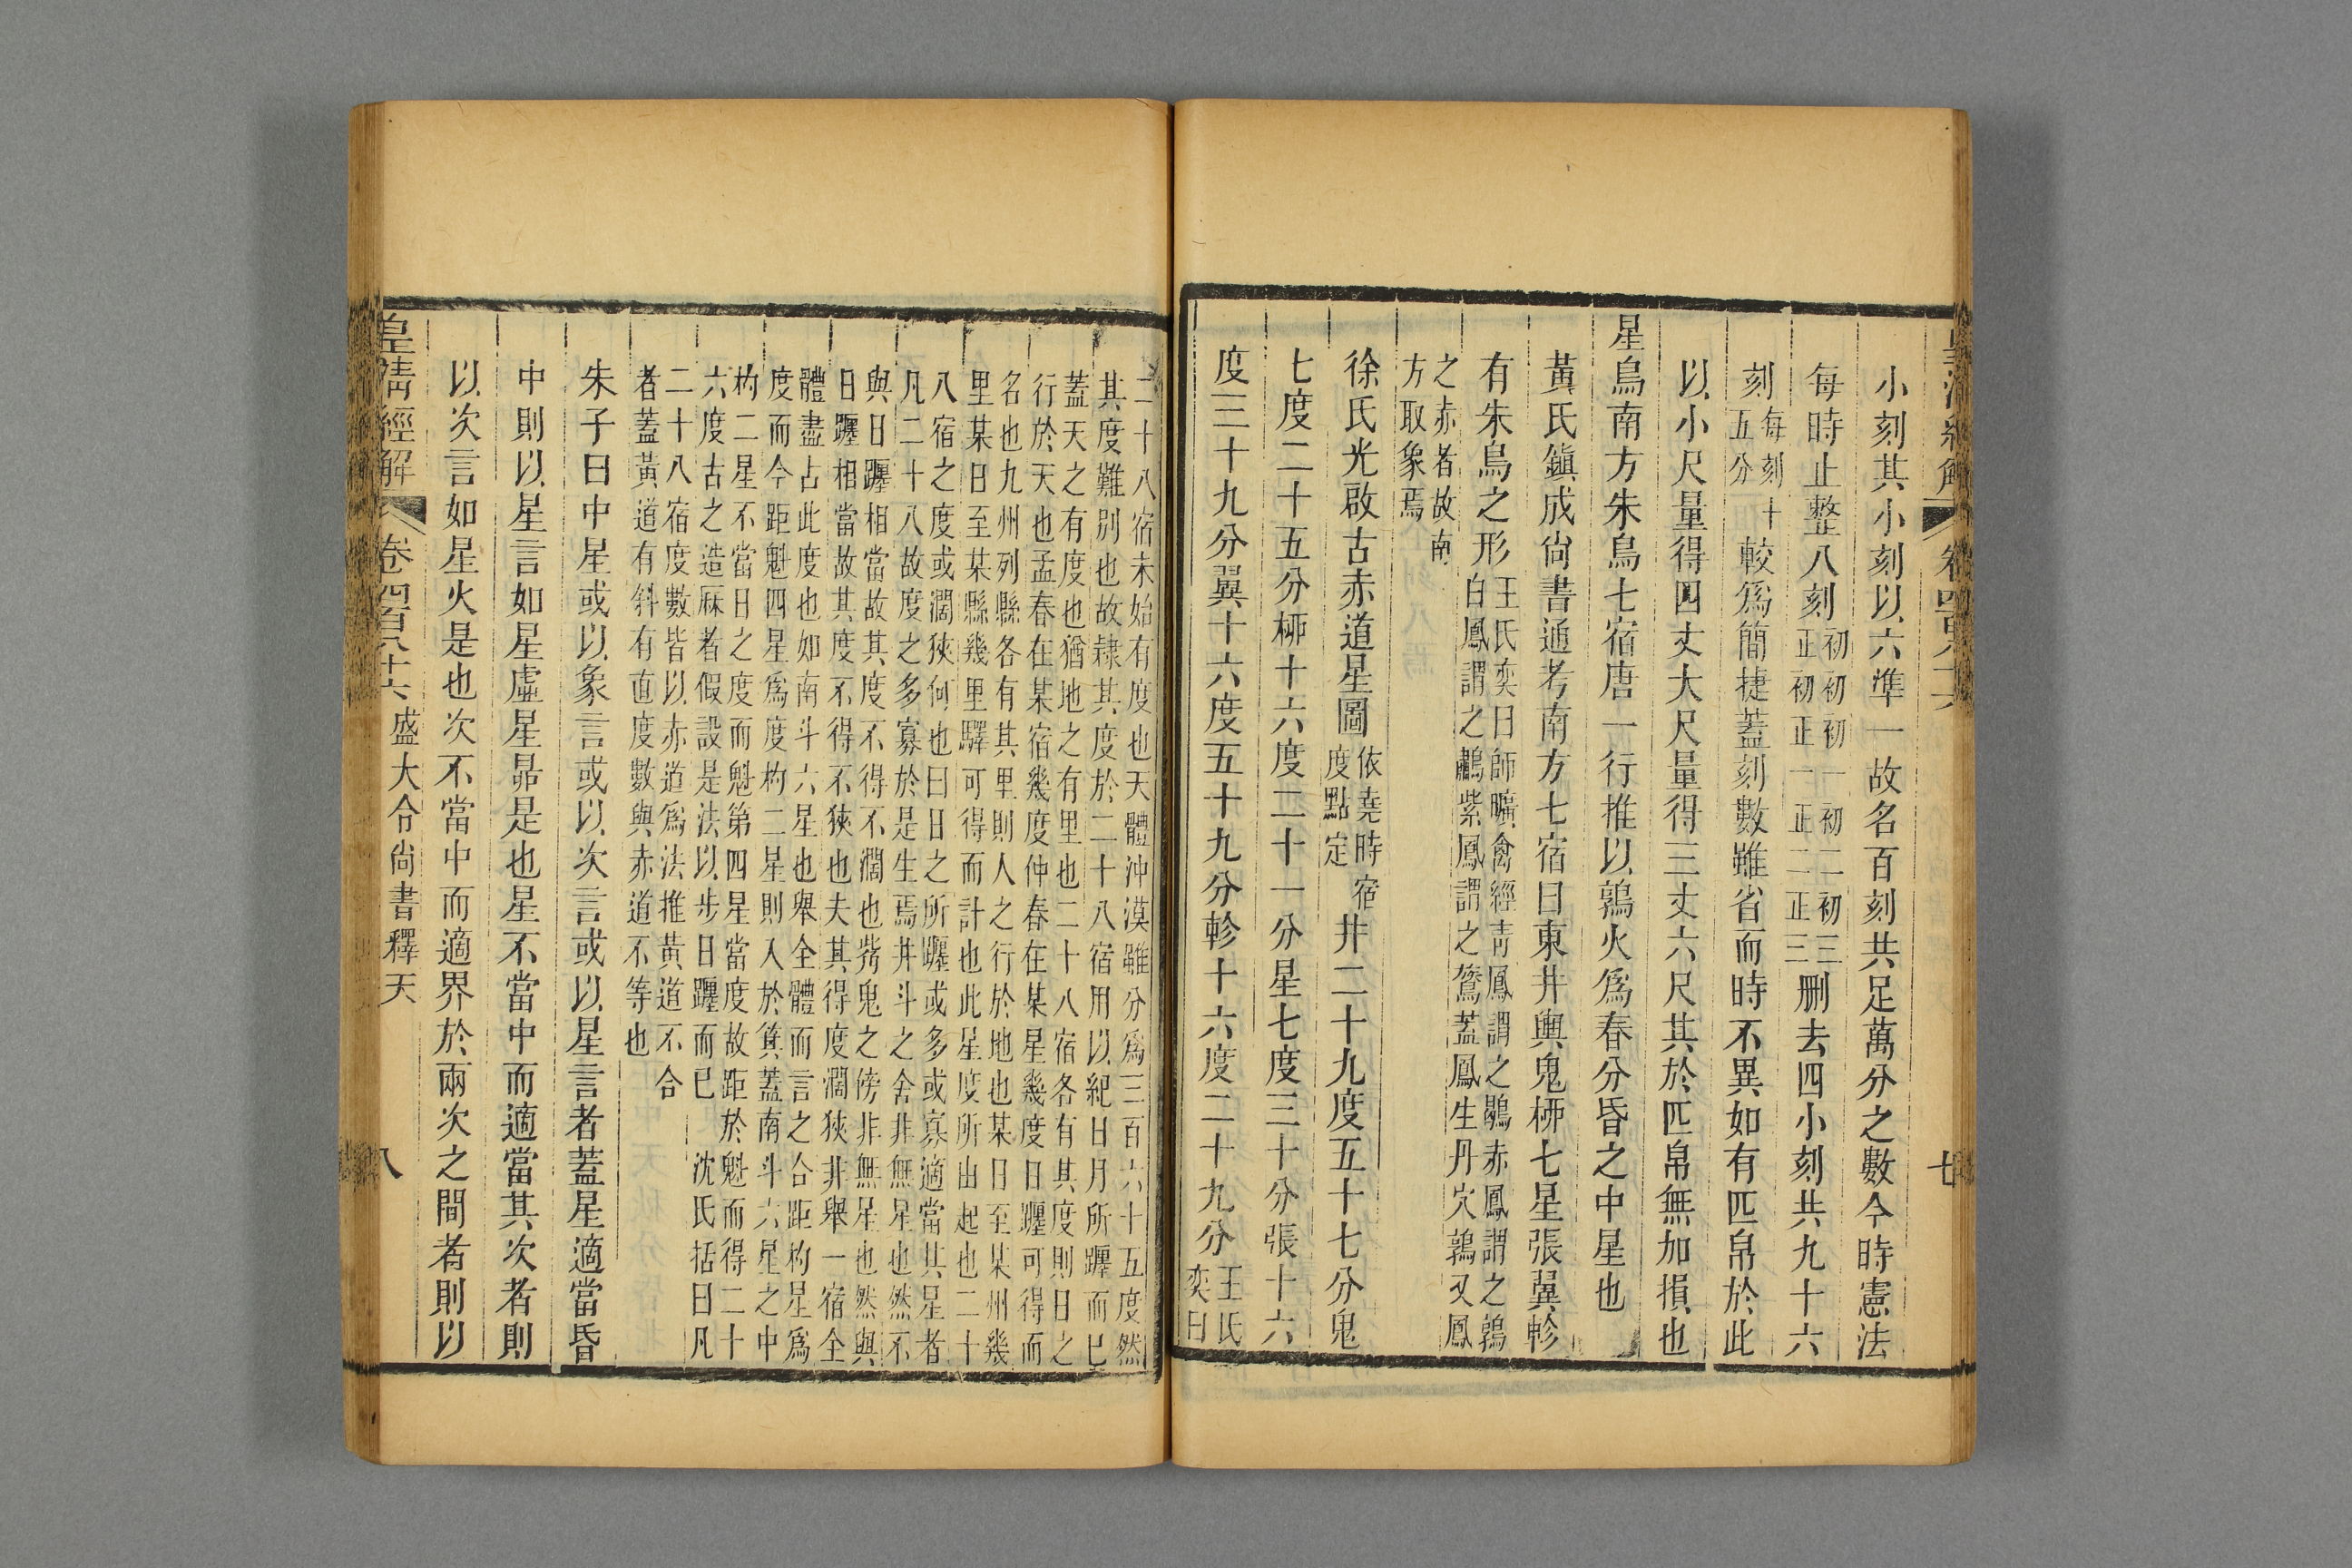 皇清經解 卷四百八十六 七
小刻其小刻以六準一故名百刻共足萬分之數今時憲法
每時止整八刻初初初一初二初三正初正一正二正三删去四小刻共九十六
刻每刻十五分較爲簡捷蓋刻數雖省而時不異如有匹帛於此
以小尺量得四丈大尺量得三丈六尺其於匹帛無加損也
星鳥南方朱鳥七宿唐一行推以鶉火爲春分昏之中星也
黃氏鎮成尚書通考南方七宿曰東井輿鬼栁七星張翼軫
有朱鳥之形王氏奕曰師曠禽經青鳳謂之鶡赤鳳謂之鶉白鳳謂之鷫紫鳳謂之鷟蓋鳳生丹穴鶉又鳳
之赤者故南方取象焉
徐氏光啟古赤道星圖依堯時宿度點定井二十九度五十七分鬼
七度二十五分栁十六度二十一分星七度三十分張十六
度三十九分翼十六度五十九分軫十六度二十九分王氏奕曰
二十八宿未始有度也天體沖漠雖分爲三百六十五度然
其度難別也故隷其度於二十八宿用以紀日月所躔而已
蓋天之有度也猶地之有里也二十八宿各有其度則日之
行於天也孟春在某宿幾度仲春在某星幾度日躔可得而
名也九州列縣各有其里則人之行於地也某日至某州幾
里某日至某縣幾里驛可得而計也此星度所由起也二十
八宿之度或濶狹何也曰日之所躔或多或寡適當其星者
凡二十八故度之多寡於是生焉井斗之舍非無星也然不
與日躔相當故其度不得不濶也觜鬼之傍非無星也然與
日躔相當故其度不得不狹也夫其得度濶狹非舉一宿全
體盡占此度也如南斗六星也舉全體而言之合距杓星爲
度而今距魁四星爲度杓二星則入於箕蓋南斗六星之中
杓二星不當日之度而魁第四星當度故距於魁而得二十
六度古之造厤者假設是法以步日躔而已 沈氏括曰凡
二十八宿度數皆以赤道爲法推黃道不合
者蓋黃道有斜有直度數與赤道不等也
朱子曰中星或以象言或以次言或以星言者蓋星適當昏
中則以星言如星虛星昴是也星不當中而適當其次者則
以次言如星火是也次不當中而適界於兩次之間者則以
皇清經解 卷四百八十六 盛大令尚書釋天 八